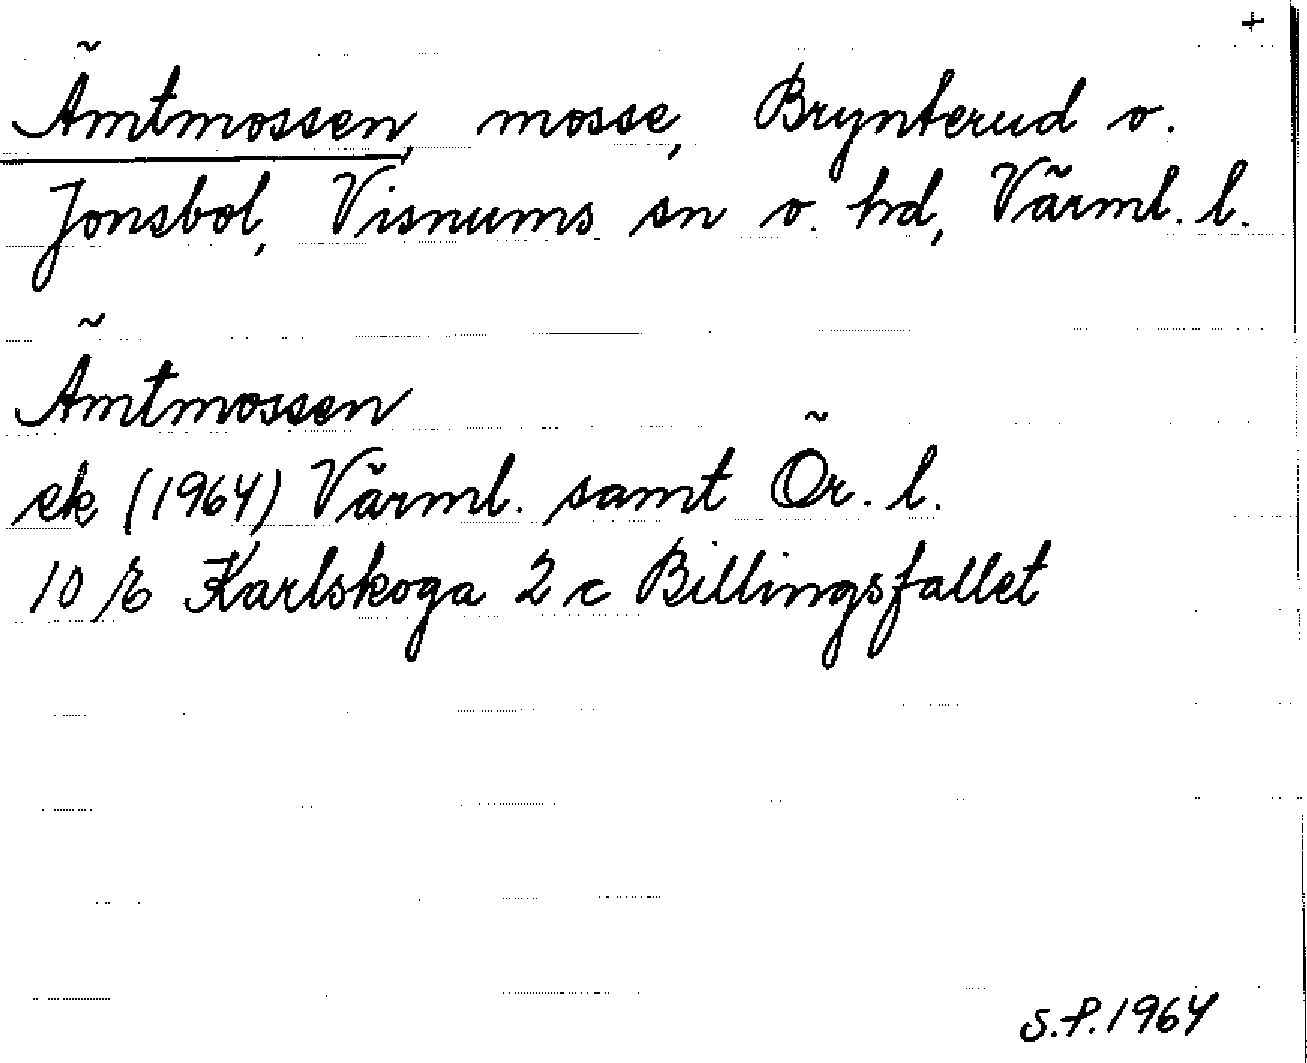 +
Ämtmossen, mosse, Brynterud o.
Jonsbol, Visnums sn o. hd, Värml. l.
Ämtmossen
ek (1964) Värml. samt Ör. l.
10 E Karlskoga 2 c Billingsfallet
S.P. 1964